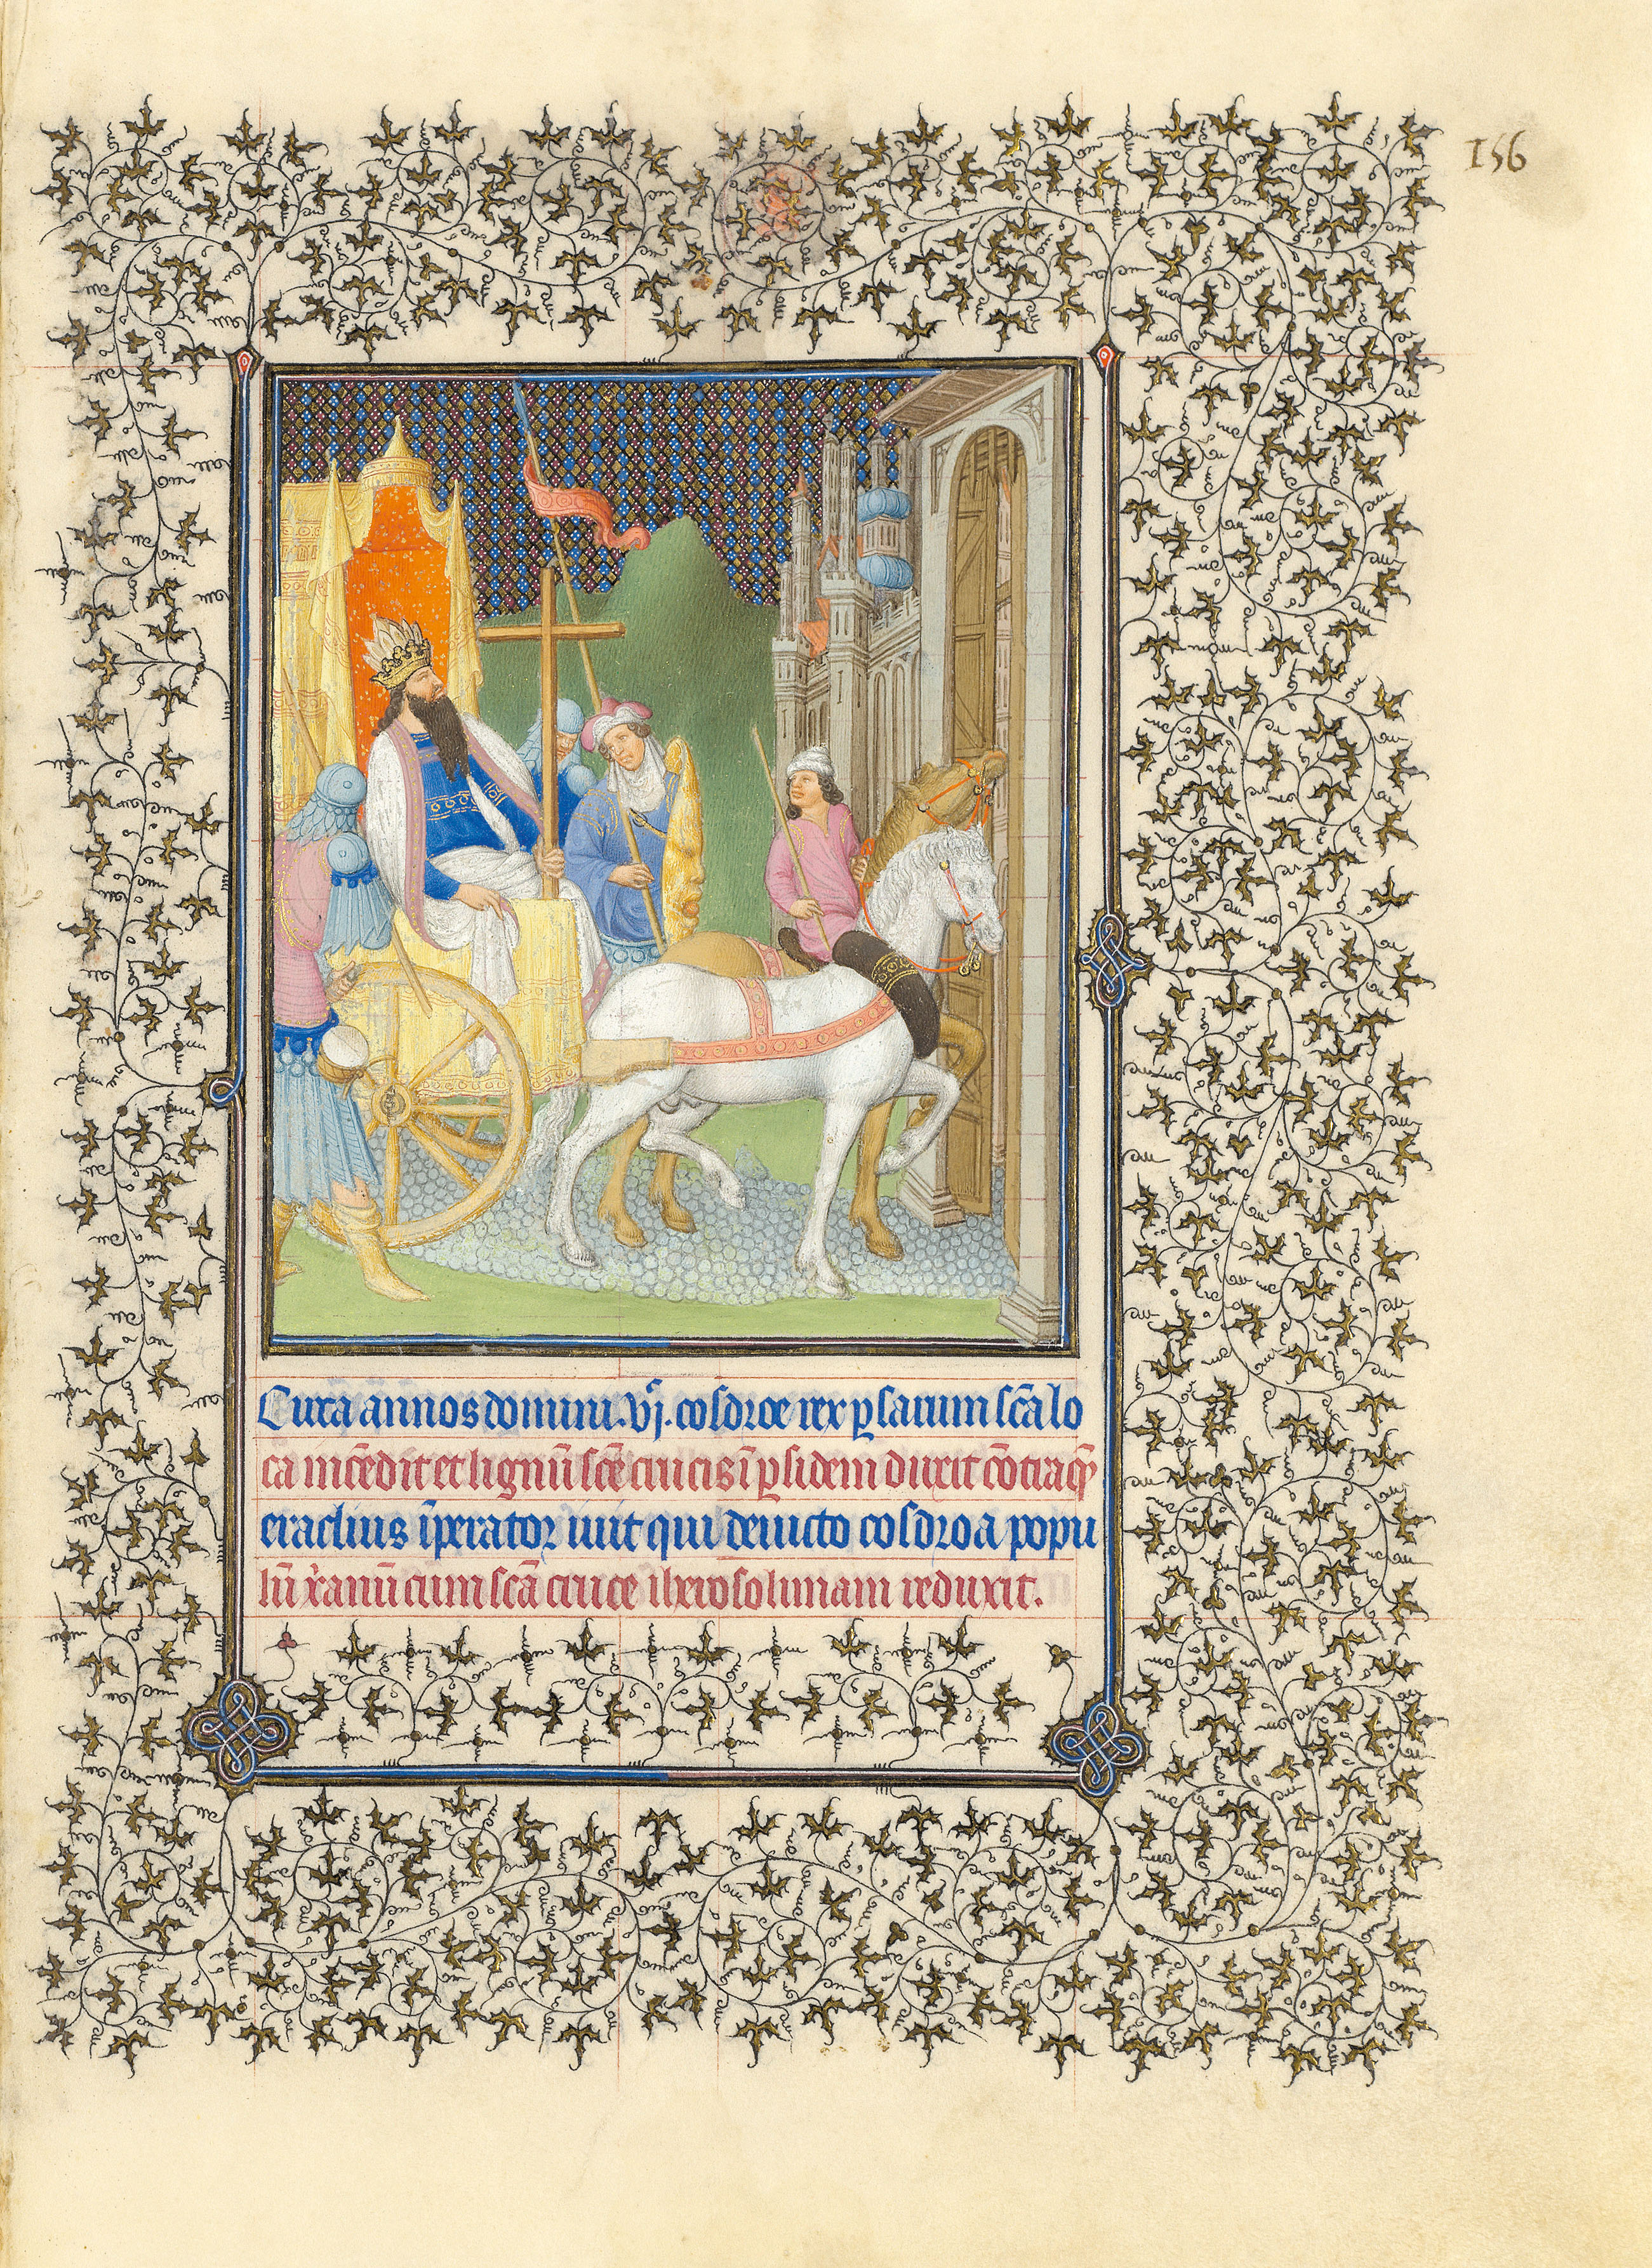 156
Circa annos domini .vjͨ. cosdroe rex ꝑsarum scā lo
ca incēdit et lignū scē crucis ī ꝑsidem duxit cōtra q̄
eraclius īperator iuit qui deuicto cosdroa popu
lū xp̄anū cum scā cruce iherosolimam reduxit.